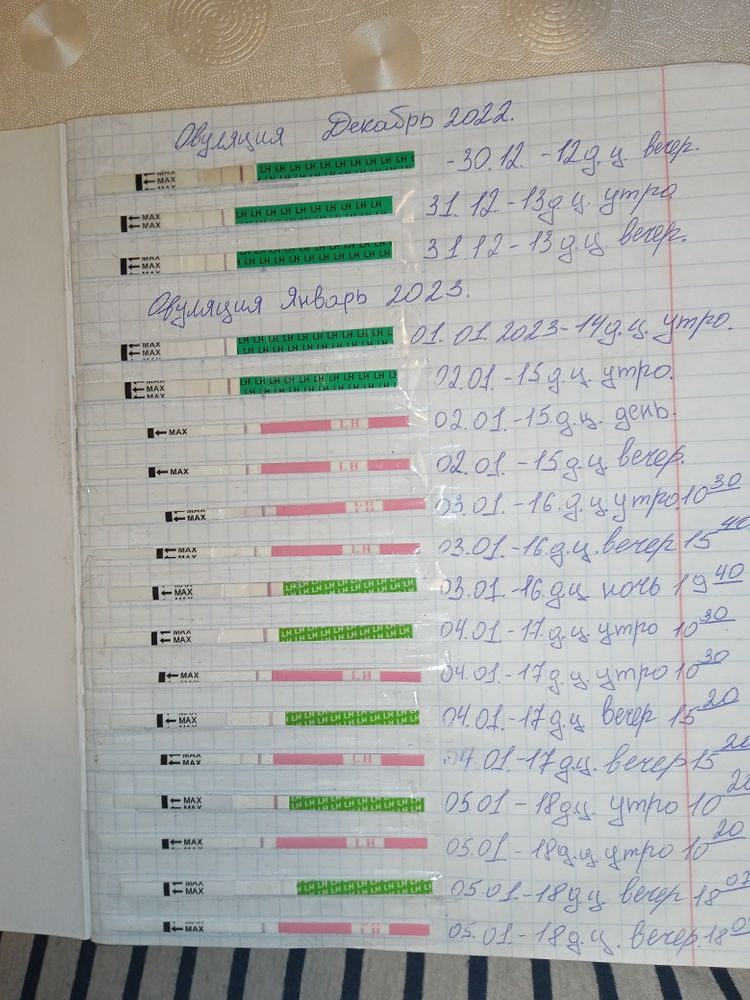 Овуляция Декабрь 2022.
MAX MAX LH LH LH LH LH LH LH LH LH -30.12. -12д.ц. вечер.
MAX MAX LH LH LH LH LH LH LH LH LH 31.12-13д.ц. утро
MAX MAX LH LH LH LH LH LH LH LH LH 31.12-13д.ц. вечер.
Овуляция Январь 2023.
MAX MAX LH LH LH LH LH LH LH LH LH 01.01.2023-14д.ц. утро.
MAX MAX LH LH LH LH LH LH LH LH LH 02.01.-15д.ц. утро.
MAX LH 02.01.-15.д.ц. день.
MAX LH 02.01.-15д.ц. вечер.
MAX LH 03.01.-16.д.ц. утро.10 30
MAX LH 03.01.-16.д.ц. вечер 15 40
MAX MAX LH LH LH LH LH LH LH LH 03.01.-16.д.ц. ночь 19 40
MAX LH LH LH LH LH LH LH LH 04.01.-17.д.ц. утро 10 30
MAX LH 04.01.-17д.ц. утро 10 30
MAX LH LH LH LH LH LH LH LH 04.01.-17д.ц. вечер 15 20
MAX LH 04.01-17д.ц. вечер 15
MAX MAX LH LH LH LH LH LH LH LH 05.01-18д.ц. утро 10 20
MAX LH 05.01-18д.ц. утро 10 20
MAX MAX LH LH LH LH LH LH LH LH 05.01.-18д.ц. вечер 18
MAX LH 05.01.-18.д.ц. вечер.18